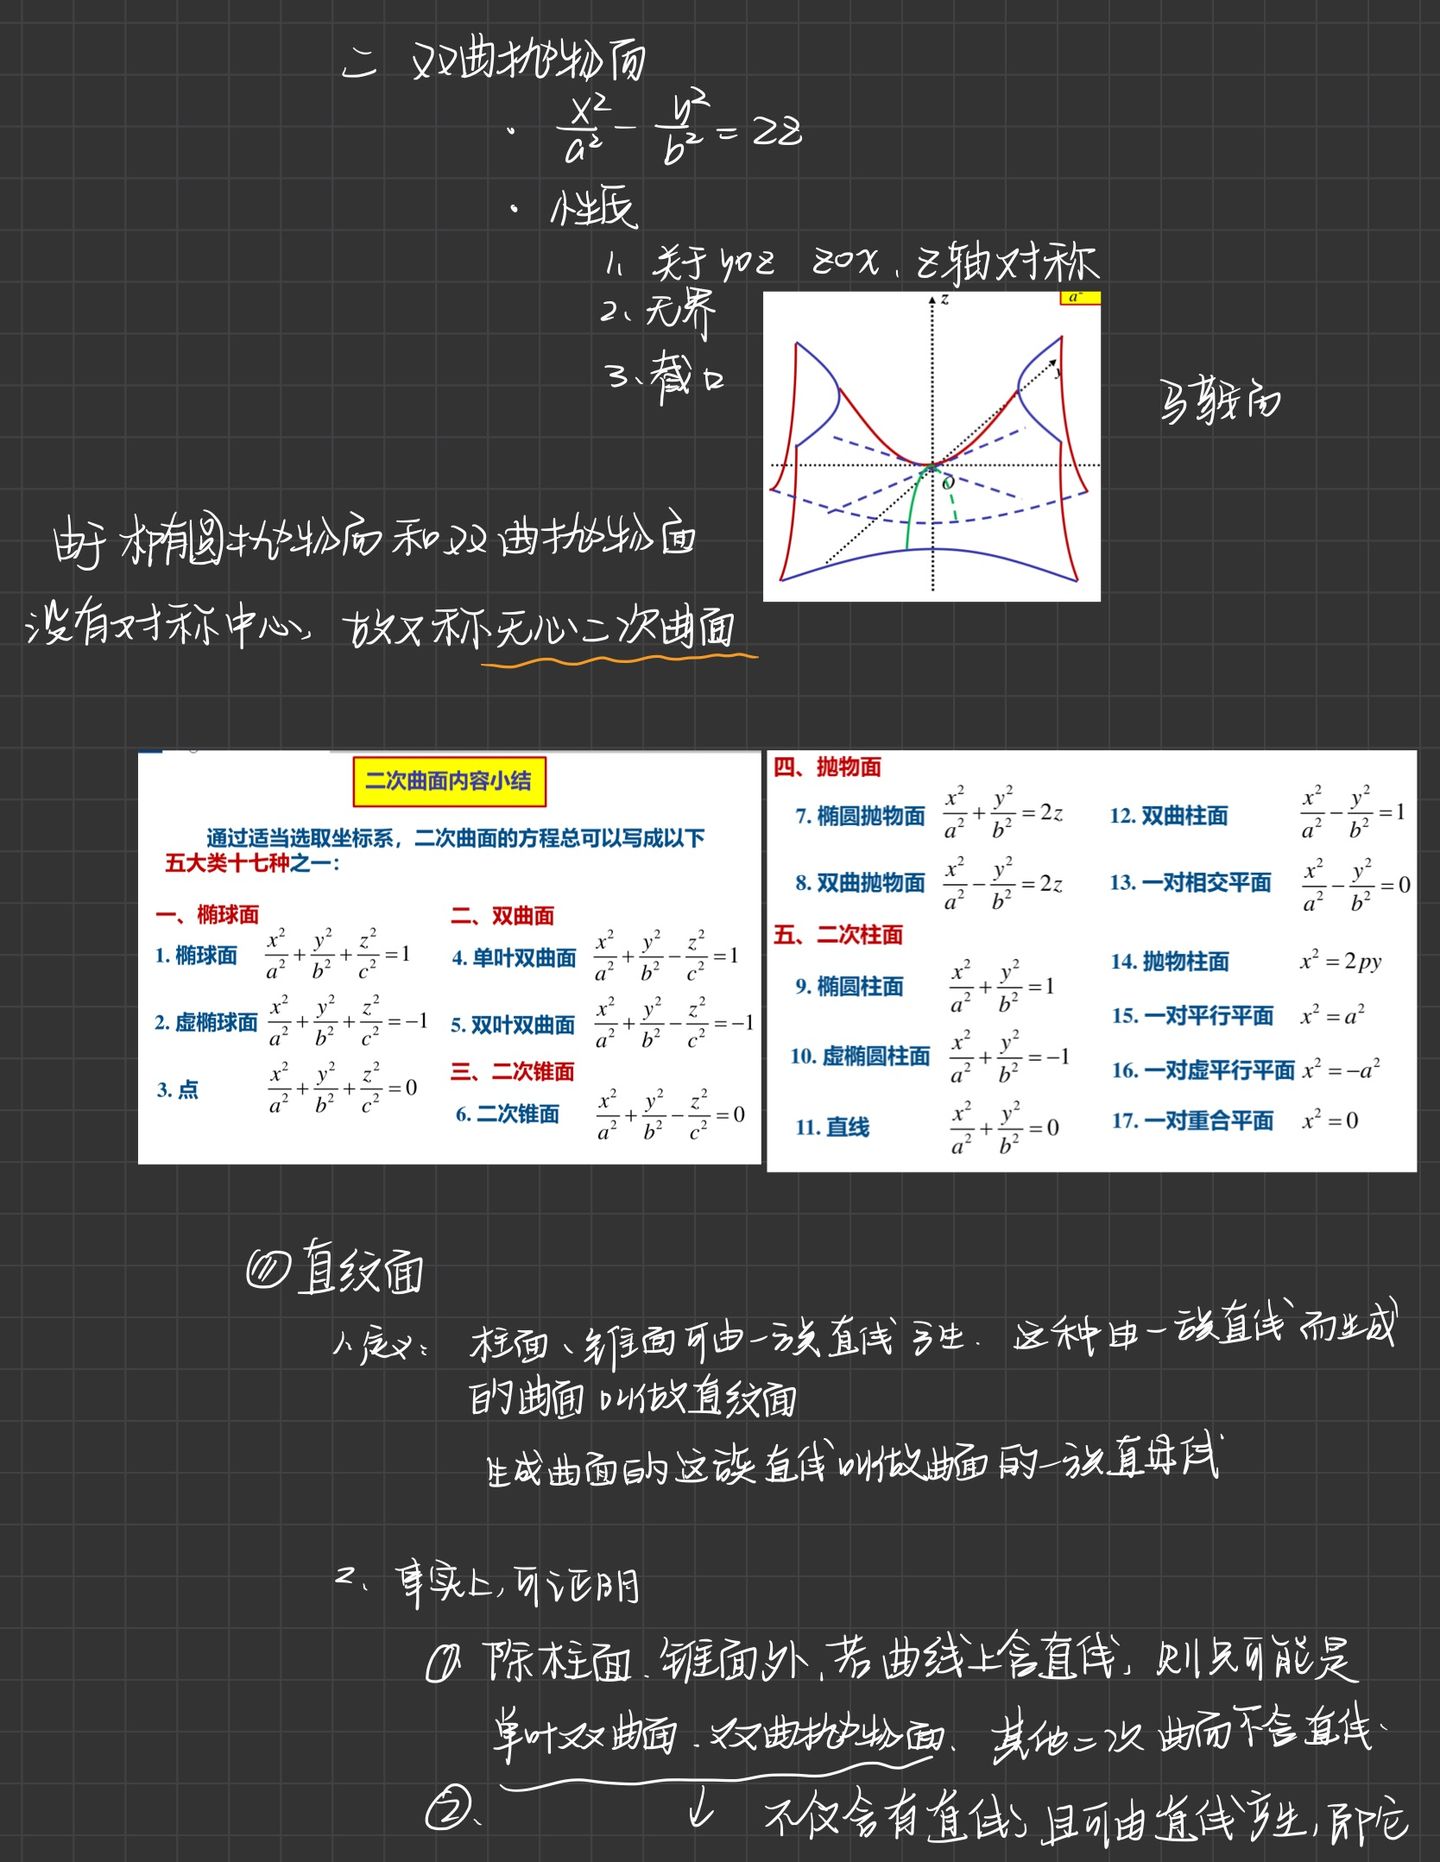 二 双曲抛物面
· x²/a² - y²/b² = 2z
· 性质
1、关于yoz zox、z轴对称
2、无界
3、截口
z
a²
y
O
马鞍面
由于椭圆抛物面和双曲抛物面
没有对称中心，故又称无心二次曲面
二次曲面内容小结
通过适当选取坐标系，二次曲面的方程总可以写成以下
五大类十七种之一：
一、椭球面
1. 椭球面 x²/a² + y²/b² + z²/c² = 1
2. 虚椭球面 x²/a² + y²/b² + z²/c² = -1
3. 点 x²/a² + y²/b² + z²/c² = 0
二、双曲面
4. 单叶双曲面 x²/a² + y²/b² - z²/c² = 1
5. 双叶双曲面 x²/a² + y²/b² - z²/c² = -1
三、二次锥面
6. 二次锥面 x²/a² + y²/b² - z²/c² = 0
四、抛物面
7. 椭圆抛物面 x²/a² + y²/b² = 2z
8. 双曲抛物面 x²/a² - y²/b² = 2z
五、二次柱面
9. 椭圆柱面 x²/a² + y²/b² = 1
10. 虚椭圆柱面 x²/a² + y²/b² = -1
11. 直线 x²/a² + y²/b² = 0
12. 双曲柱面 x²/a² - y²/b² = 1
13. 一对相交平面 x²/a² - y²/b² = 0
14. 抛物柱面 x² = 2py
15. 一对平行平面 x² = a²
16. 一对虚平行平面 x² = -a²
17. 一对重合平面 x² = 0
直纹面
1、定义： 柱面、锥面可由一族直线产生．这种由一族直线而生成
的曲面叫做直纹面
生成曲面的这族直线叫做曲面的一族直母线
2、事实上，可证明
① 除柱面、锥面外，若曲线上含直线，则只可能是
单叶双曲面、双曲抛物面、其他二次曲面不含直线、
②、 ↓ 不仅含有直线，且可由直线产生，即它